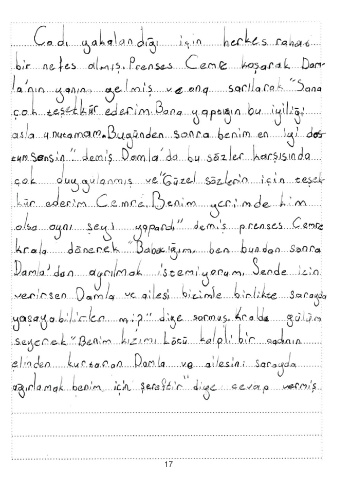 Cadı yakalandığı için herkes rahat
bir nefes almış. Prenses Cemre koşarak Dam-
la'nın yanına gelmiş ve ona sarılarak "Sana
çok teşekkür ederim. Bana yaptığın bu iyiliği
asla unutamam. Bugünden sonra benim en iyi dos-
tumsensin" demiş Damla'da bu sözler karşısında
çok duygulanmış ve "Güzel sözlerin için teşek-
kür ederim Cemre. Benim yerimde kim
olsa aynı şeyi yapardı" demiş prenses Cemre
krala dönerek "Babacığım, ben bundan sonra
Damla'dan ayrılmak istemiyorum. Sende izin
verirsen Damla ve ailesi bizimle birlikte sarayda
yaşayabilirler mi?" diye sormuş. Kralda gülüm
seyerek "Benim kızımı kötü kalpli bir cadının
elinden kurtaran Damla ve ailesini sarayda
ağırlamak benim için şereftir" diye cevap vermiş.
17